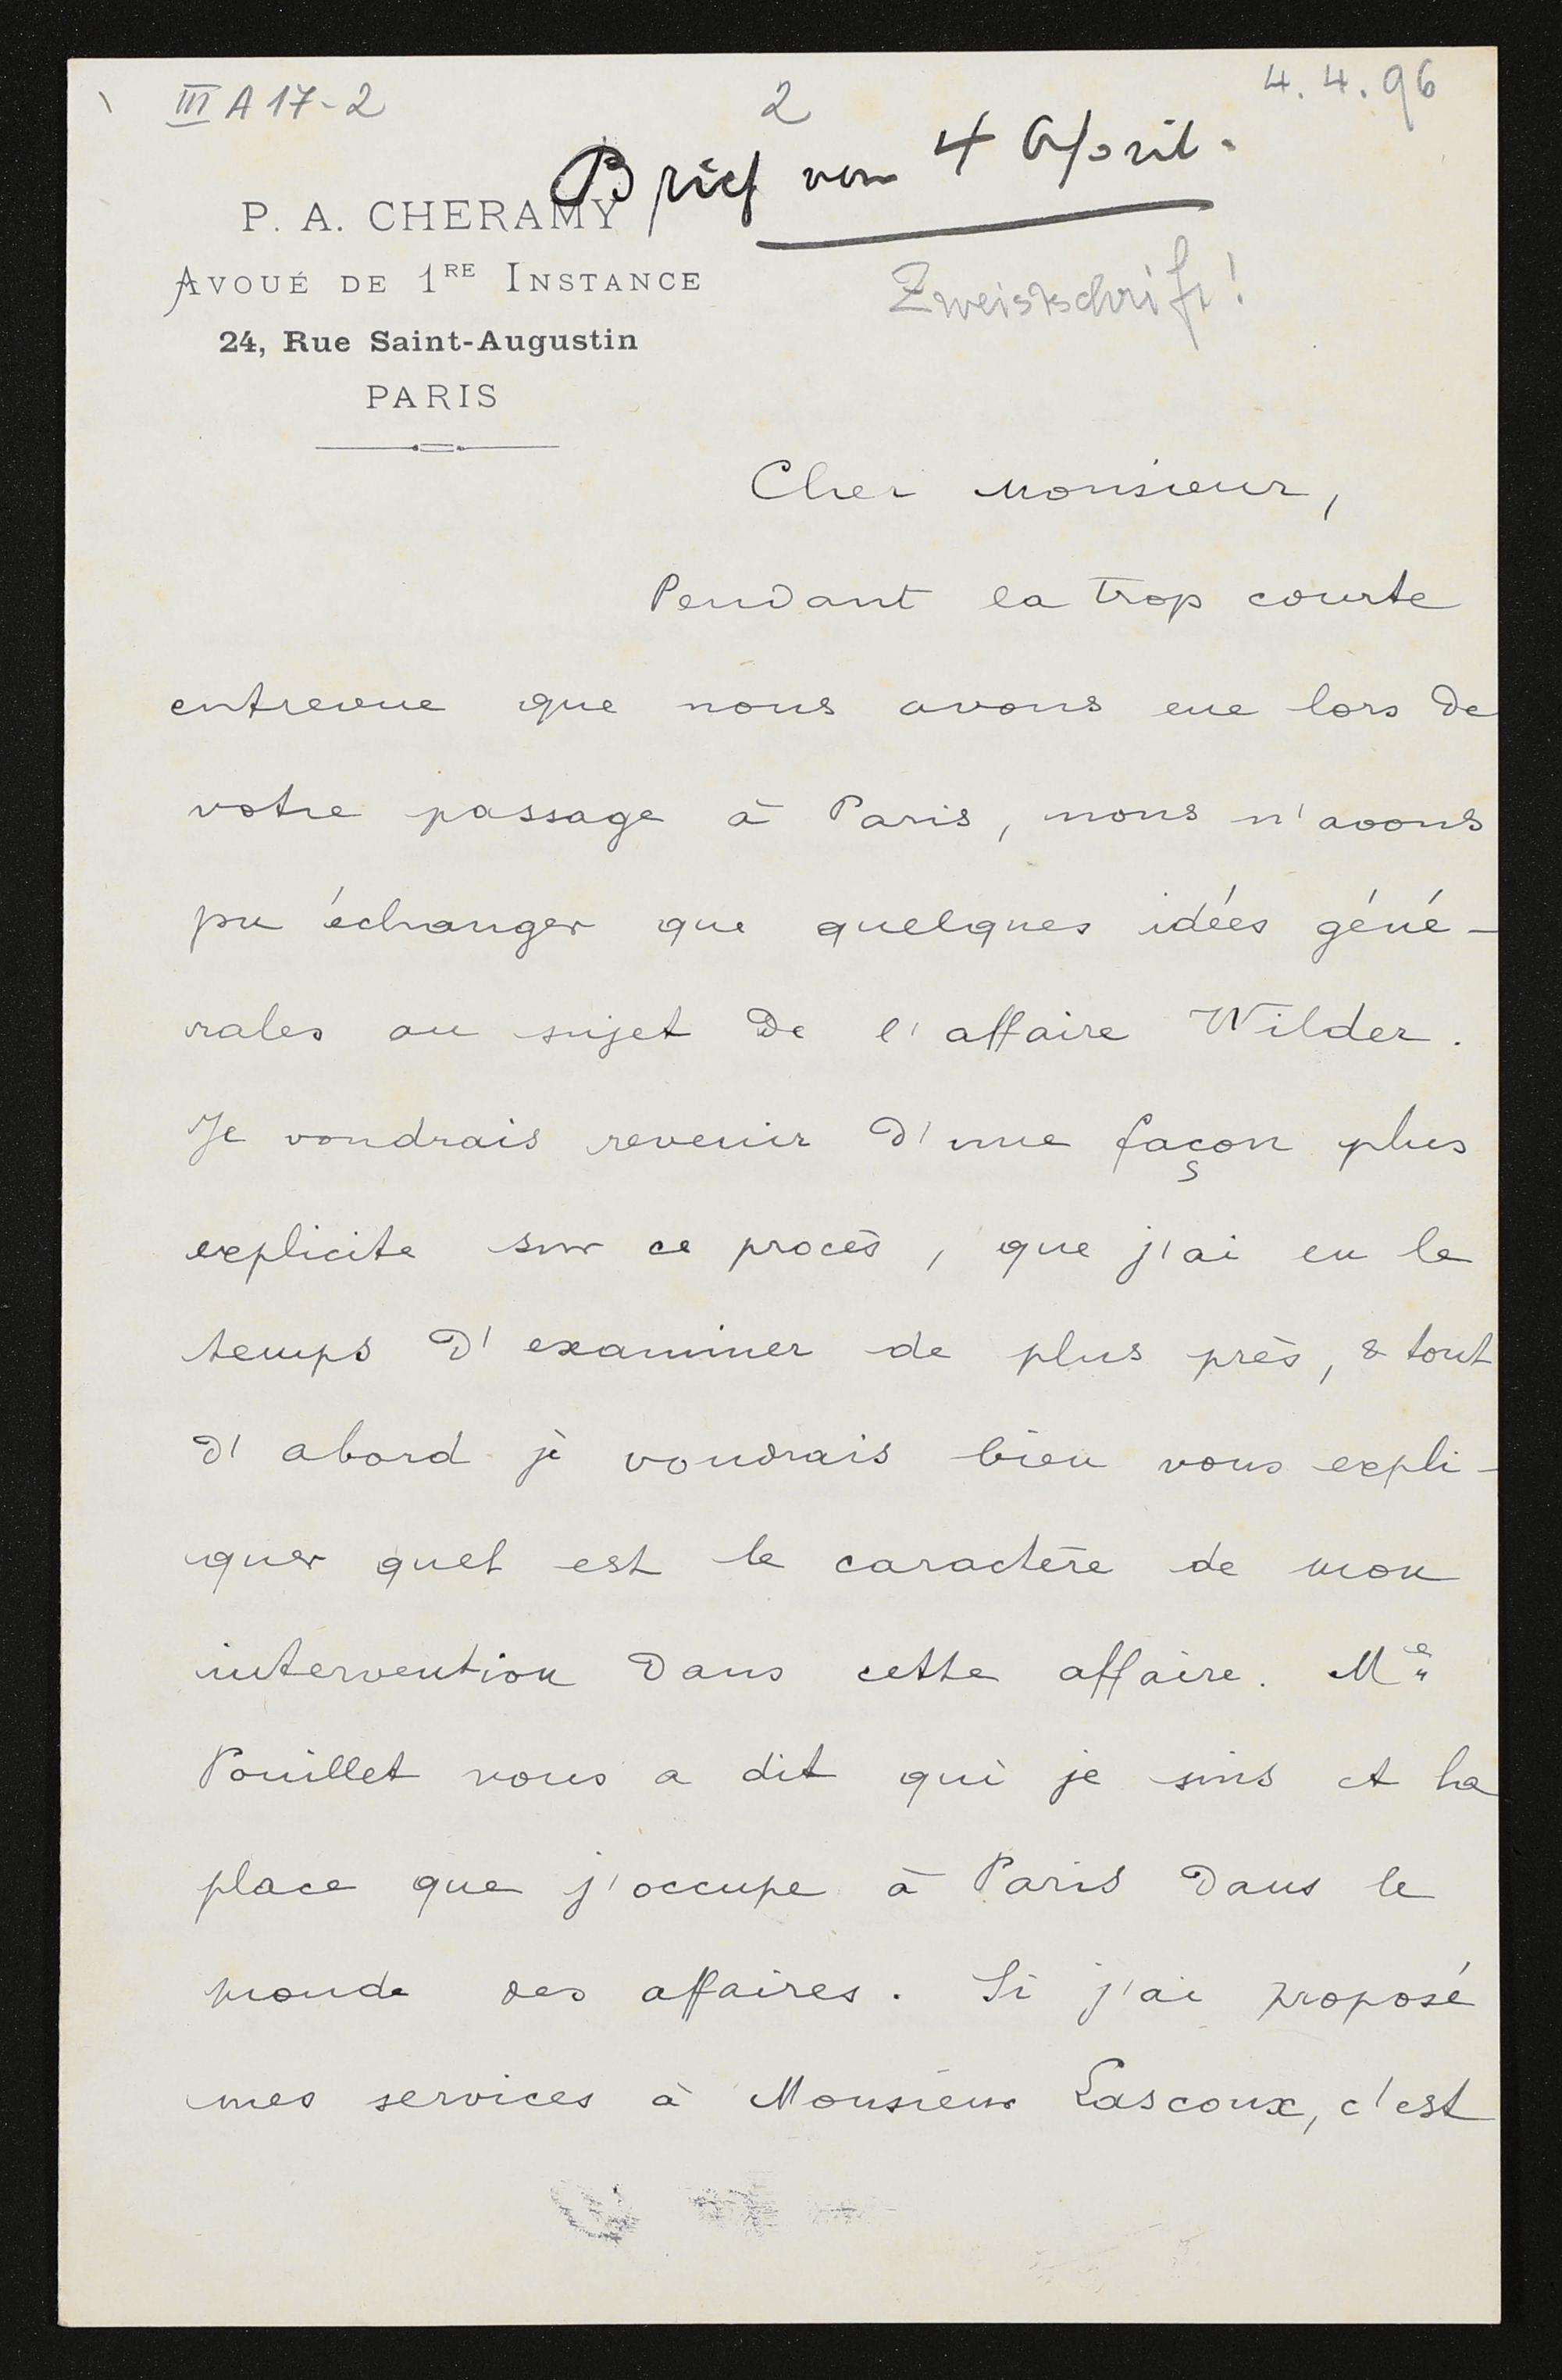 III A 17-2
2
4. 4. 96
Brief vom 4 April.
P. A. CHERAMY
AVOUÉ DE 1RE INSTANCE
24, Rue Saint-Augustin
PARIS
Zweitschrift!
Cher Monsieur,
Pendant la trop courte
entrevue que nous avons eue lors de
votre passage à Paris, nous n'avons
pu échanger que quelques idées géné-
rales au sujet de l'affaire Wilder.
Je voudrais revenir d'une façon plus
explicite sur ce procès, que j'ai eu le
temps d'examiner de plus près, & tout
d'abord je voudrais bien vous expli-
quer quel est le caractère de mon
intervention dans cette affaire. Me
Pouillet vous a dit qui je suis et la
place que j'occupe à Paris dans le
monde des affaires. Si j'ai proposé
mes services à Monsieur Lascoux, c'est